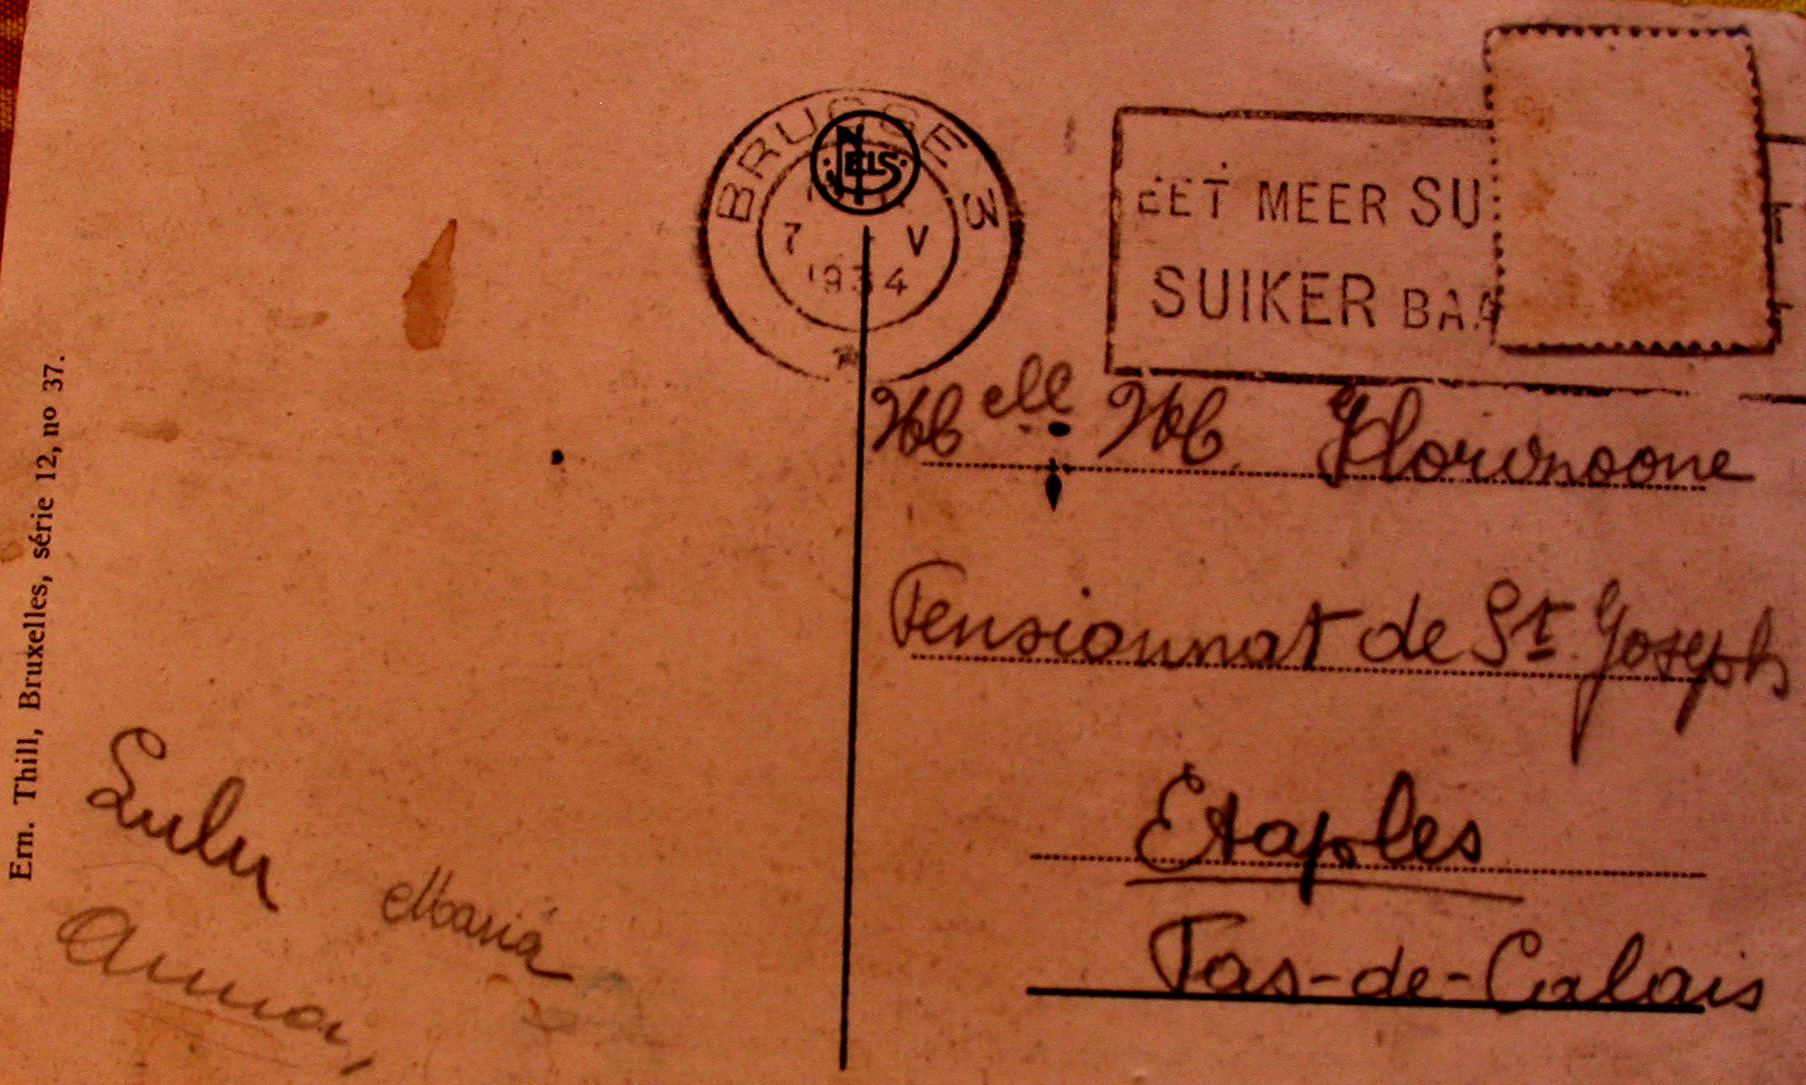 BRUGGE 3
NELS
7 V
1934
EET MEER SU
SUIKER BAA
Melle M.
Pensionnat de St Joseph
Etaples
Pas-de-Calais
Ern. Thill, Bruxelles, série 12, no 37.
Lulu
Maria
Anna,